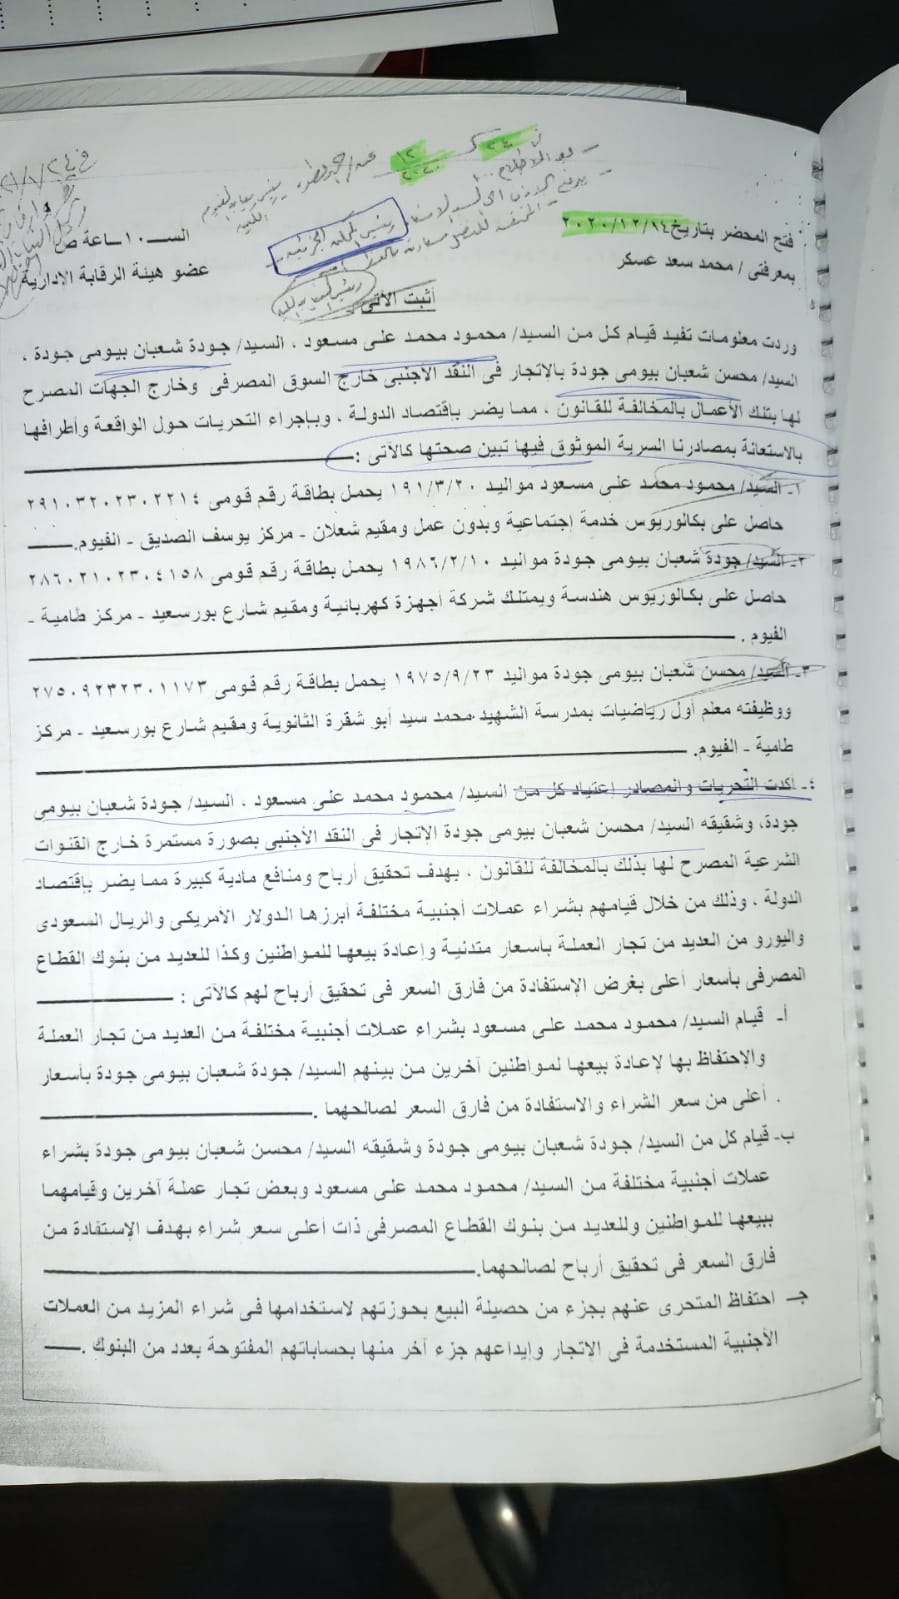 ن ٢٤٠ ك ١٢/٢٠٢٠
فتح المحضر بتاريخ ٢٠٢٠/١٢/١٤ الســ١٠ــاعة ص
بمعرفتى / محمد سعد عسكر عضو هيئة الرقابة الادارية
أثبت الأتى
وردت معلومات تفيد قيام كل من السيد/ محمود محمد على مسعود ، السيد/ جودة شعبان بيومى جودة ،
السيد/ محسن شعبان بيومى جودة بالإتجار فى النقد الأجنبى خارج السوق المصرفى وخارج الجهات المصرح
لها بتلك الأعمال بالمخالفة للقانون ، مما يضر بإقتصاد الدولة ، وبإجراء التحريات حول الواقعة وأطرافها
بالاستعانة بمصادرنا السرية الموثوق فيها تبين صحتها كالآتى :
١- السيد/ محمود محمد على مسعود مواليد ١٩١/٣/٢٠ يحمل بطاقة رقم قومى ٢٩١٠٣٢٠٢٣٠٢٢١٤
حاصل على بكالوريوس خدمة إجتماعية وبدون عمل ومقيم شعلان - مركز يوسف الصديق - الفيوم.
٢- السيد/ جودة شعبان بيومى جودة مواليد ١٩٨٦/٢/١٠ يحمل بطاقة رقم قومى ٢٨٦٠٢١٠٢٣٠٤١٥٨
حاصل على بكالوريوس هندسة ويمتلك شركة أجهزة كهربائية ومقيم شارع بورسعيد - مركز طامية -
الفيوم .
٣- السيد/ محسن شعبان بيومى جودة مواليد ١٩٧٥/٩/٢٣ يحمل بطاقة رقم قومى ٢٧٥٠٩٢٣٢٣٠١١٧٣
ووظيفته معلم أول رياضيات بمدرسة الشهيد محمد سيد أبو شقرة الثانوية ومقيم شارع بورسعيد - مركز
طامية - الفيوم.
٤- اكدت التحريات والمصادر إعتياد كل من السيد/ محمود محمد على مسعود ، السيد/ جودة شعبان بيومى
جودة، وشقيقه السيد/ محسن شعبان بيومى جودة الإتجار فى النقد الأجنبى بصورة مستمرة خارج القنوات
الشرعية المصرح لها بذلك بالمخالفة للقانون ، بهدف تحقيق أرباح ومنافع مادية كبيرة مما يضر بإقتصاد
الدولة ، وذلك من خلال قيامهم بشراء عملات أجنبية مختلفة أبرزها الدولار الأمريكى والريال السعودى
واليورو من العديد من تجار العملة بأسعار متدنية وإعادة بيعها للمواطنين وكذا للعديد من بنوك القطاع
المصرفى بأسعار أعلى بغرض الإستفادة من فارق السعر فى تحقيق أرباح لهم كالآتى :
أ- قيام السيد/ محمود محمد على مسعود بشراء عملات أجنبية مختلفة من العديد من تجار العملة
والإحتفاظ بها لإعادة بيعها لمواطنين آخرين من بينهم السيد/ جودة شعبان بيومى جودة بأسعار
أعلى من سعر الشراء والاستفادة من فارق السعر لصالحهما .
ب- قيام كل من السيد/ جودة شعبان بيومى جودة وشقيقه السيد/ محسن شعبان بيومى جودة بشراء
عملات أجنبية مختلفة من السيد/ محمود محمد على مسعود وبعض تجار عملة آخرين وقيامهما
ببيعها للمواطنين وللعديد من بنوك القطاع المصرفى ذات أعلى سعر شراء بهدف الإستفادة من
فارق السعر فى تحقيق أرباح لصالحهما.
جـ- احتفاظ المتحرى عنهم بجزء من حصيلة البيع بحوزتهم لاستخدامها فى شراء المزيد من العملات
الأجنبية المستخدمة فى الإتجار وإيداعهم جزء آخر منها بحساباتهم المفتوحة بعدد من البنوك .